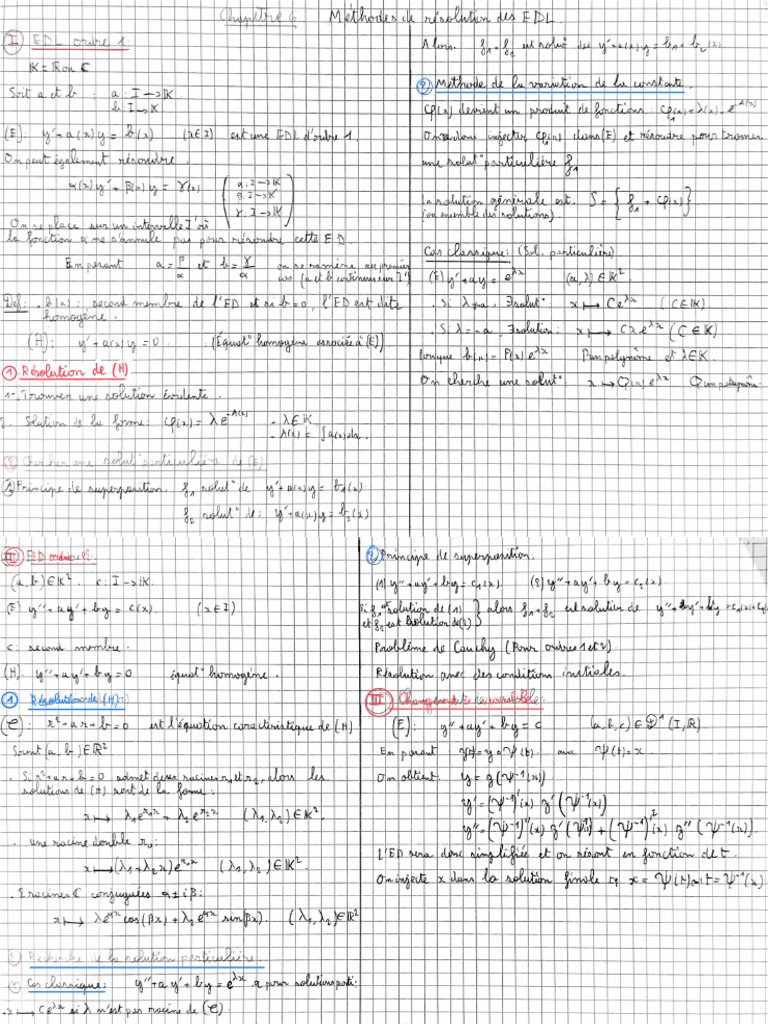 Chapitre 6 Méthodes de résolution des EDL.
I EDL ordre 1.
K = R ou C
Soit a et b : a : I → K
b : I → K
(E) : y' + a(x) y = b(x) (x∈I) est une EDL d'ordre 1.
On peut également résoudre.
α(x) y' + β(x) y = γ(x) (α : I → K
β : I → K
γ : I → K)
On se place sur un intervalle I' où
la fonction α ne s'annule pas pour résoudre cette ED.
En posant a = β/α et b = γ/α on se ramène au premier
cas (a et b continues sur I')
Def : . b(x) : second membre de l'ED et si b=0, l'ED est dite
homogène.
(H) : y' + a(x) y = 0. (Équat° homogène associée à (E))
1 Résolution de (H)
1- Trouver une solution évidente.
2. Solution de la forme : φ(x) = λ e^-A(x) - λ∈K
- A(x) = ∫a(x)dx.
2 Chercher une solut° particulière de (E)
Principe de superposition. f1 solut° de y' + a(x)y = b1(x)
f2 solut° de : y' + a(x)y = b2(x)
Alors. f1 + f2 est solut° de y' + a(x) y = b1 + b2(x)
2 Méthode de la variation de la constante.
φ(x) devient un produit de fonctions : φ1(x) = λ(x). e^-A(x)
On va donc injecter φ1(x) dans (E) et résoudre pour trouver
une solut° particulière f1
La solution générale est. S = { f1 + φ(x) }
(ou ensemble des solutions)
Cas classique : (Sol. particulière)
(E) y' + ay = e^λx (a, λ) ∈ K²
. Si λ≠-a, ∃ solut° x ↦ C e^λx (C∈K)
. Si λ = -a, ∃ solution : x ↦ C x e^λx (C∈K)
Lorsque b(x) = P(x) e^λx P un polynôme et λ∈K.
On cherche une solut° : x ↦ Q(x) e^λx Q un polynôme
II ED ordre 2.
(a, b) ∈ K². c : I → K.
(E) y'' + ay' + by = c(x). (x∈I)
c : second membre.
(H). y'' + ay' + by = 0 équat° homogène.
1 Résolution de (H)
(C) : r² + ar + b = 0 est l'équation caractéristique de (H)
Soient (a, b) ∈ R²
. Si r² + ar + b = 0 admet deux racines r1 et r2, alors les
solutions de (H) sont de la forme :
x ↦ λ1 e^r1x + λ2 e^r2x (λ1, λ2) ∈ K².
. une racine double r0 :
x ↦ (λ1 + λ2 x) e^r0x (λ1, λ2) ∈ K².
. 2 racines C conjuguées α ± iβ :
x ↦ λ e^αx cos(βx) + λ2 e^αx sin βx. (λ1, λ2) ∈ R²
2 Recherche de la solution particulière.
1 Cas classique : y'' + a y' + by = e^λx a pour solution parti-
. x ↦ C e^λx si λ n'est pas racine de (C).
2 Principe de superposition.
(1) y'' + ay' + by = c1(x). (2) y'' + ay' + by = c2(x)
Si f1 solution de (1)
et f2 est solution de (2) } alors f1 + f2 est solution de y'' + ay' + by = c1(x) + c2
Problème de Cauchy (Pour ordres 1 et 2)
Résolution avec des conditions initiales.
III Changement de variable :
(E) : y'' + ay' + by = c (a, b, c) ∈ D¹(I, R)
En posant z(t) = y ∘ Ψ(t). avec Ψ(t) = x.
On obtient : y = z(Ψ^-1(x)).
y' = (Ψ^-1)'(x) z'(Ψ^-1(x))
y'' = (Ψ^-1)''(x) z'(Ψ^-1(x)) + (Ψ^-1)'²(x) z''(Ψ^-1(x)).
L'ED sera donc simplifiée et on résout en fonction de t.
On injecte x dans la solution finale tq x = Ψ(t) et t = Ψ^-1(x).